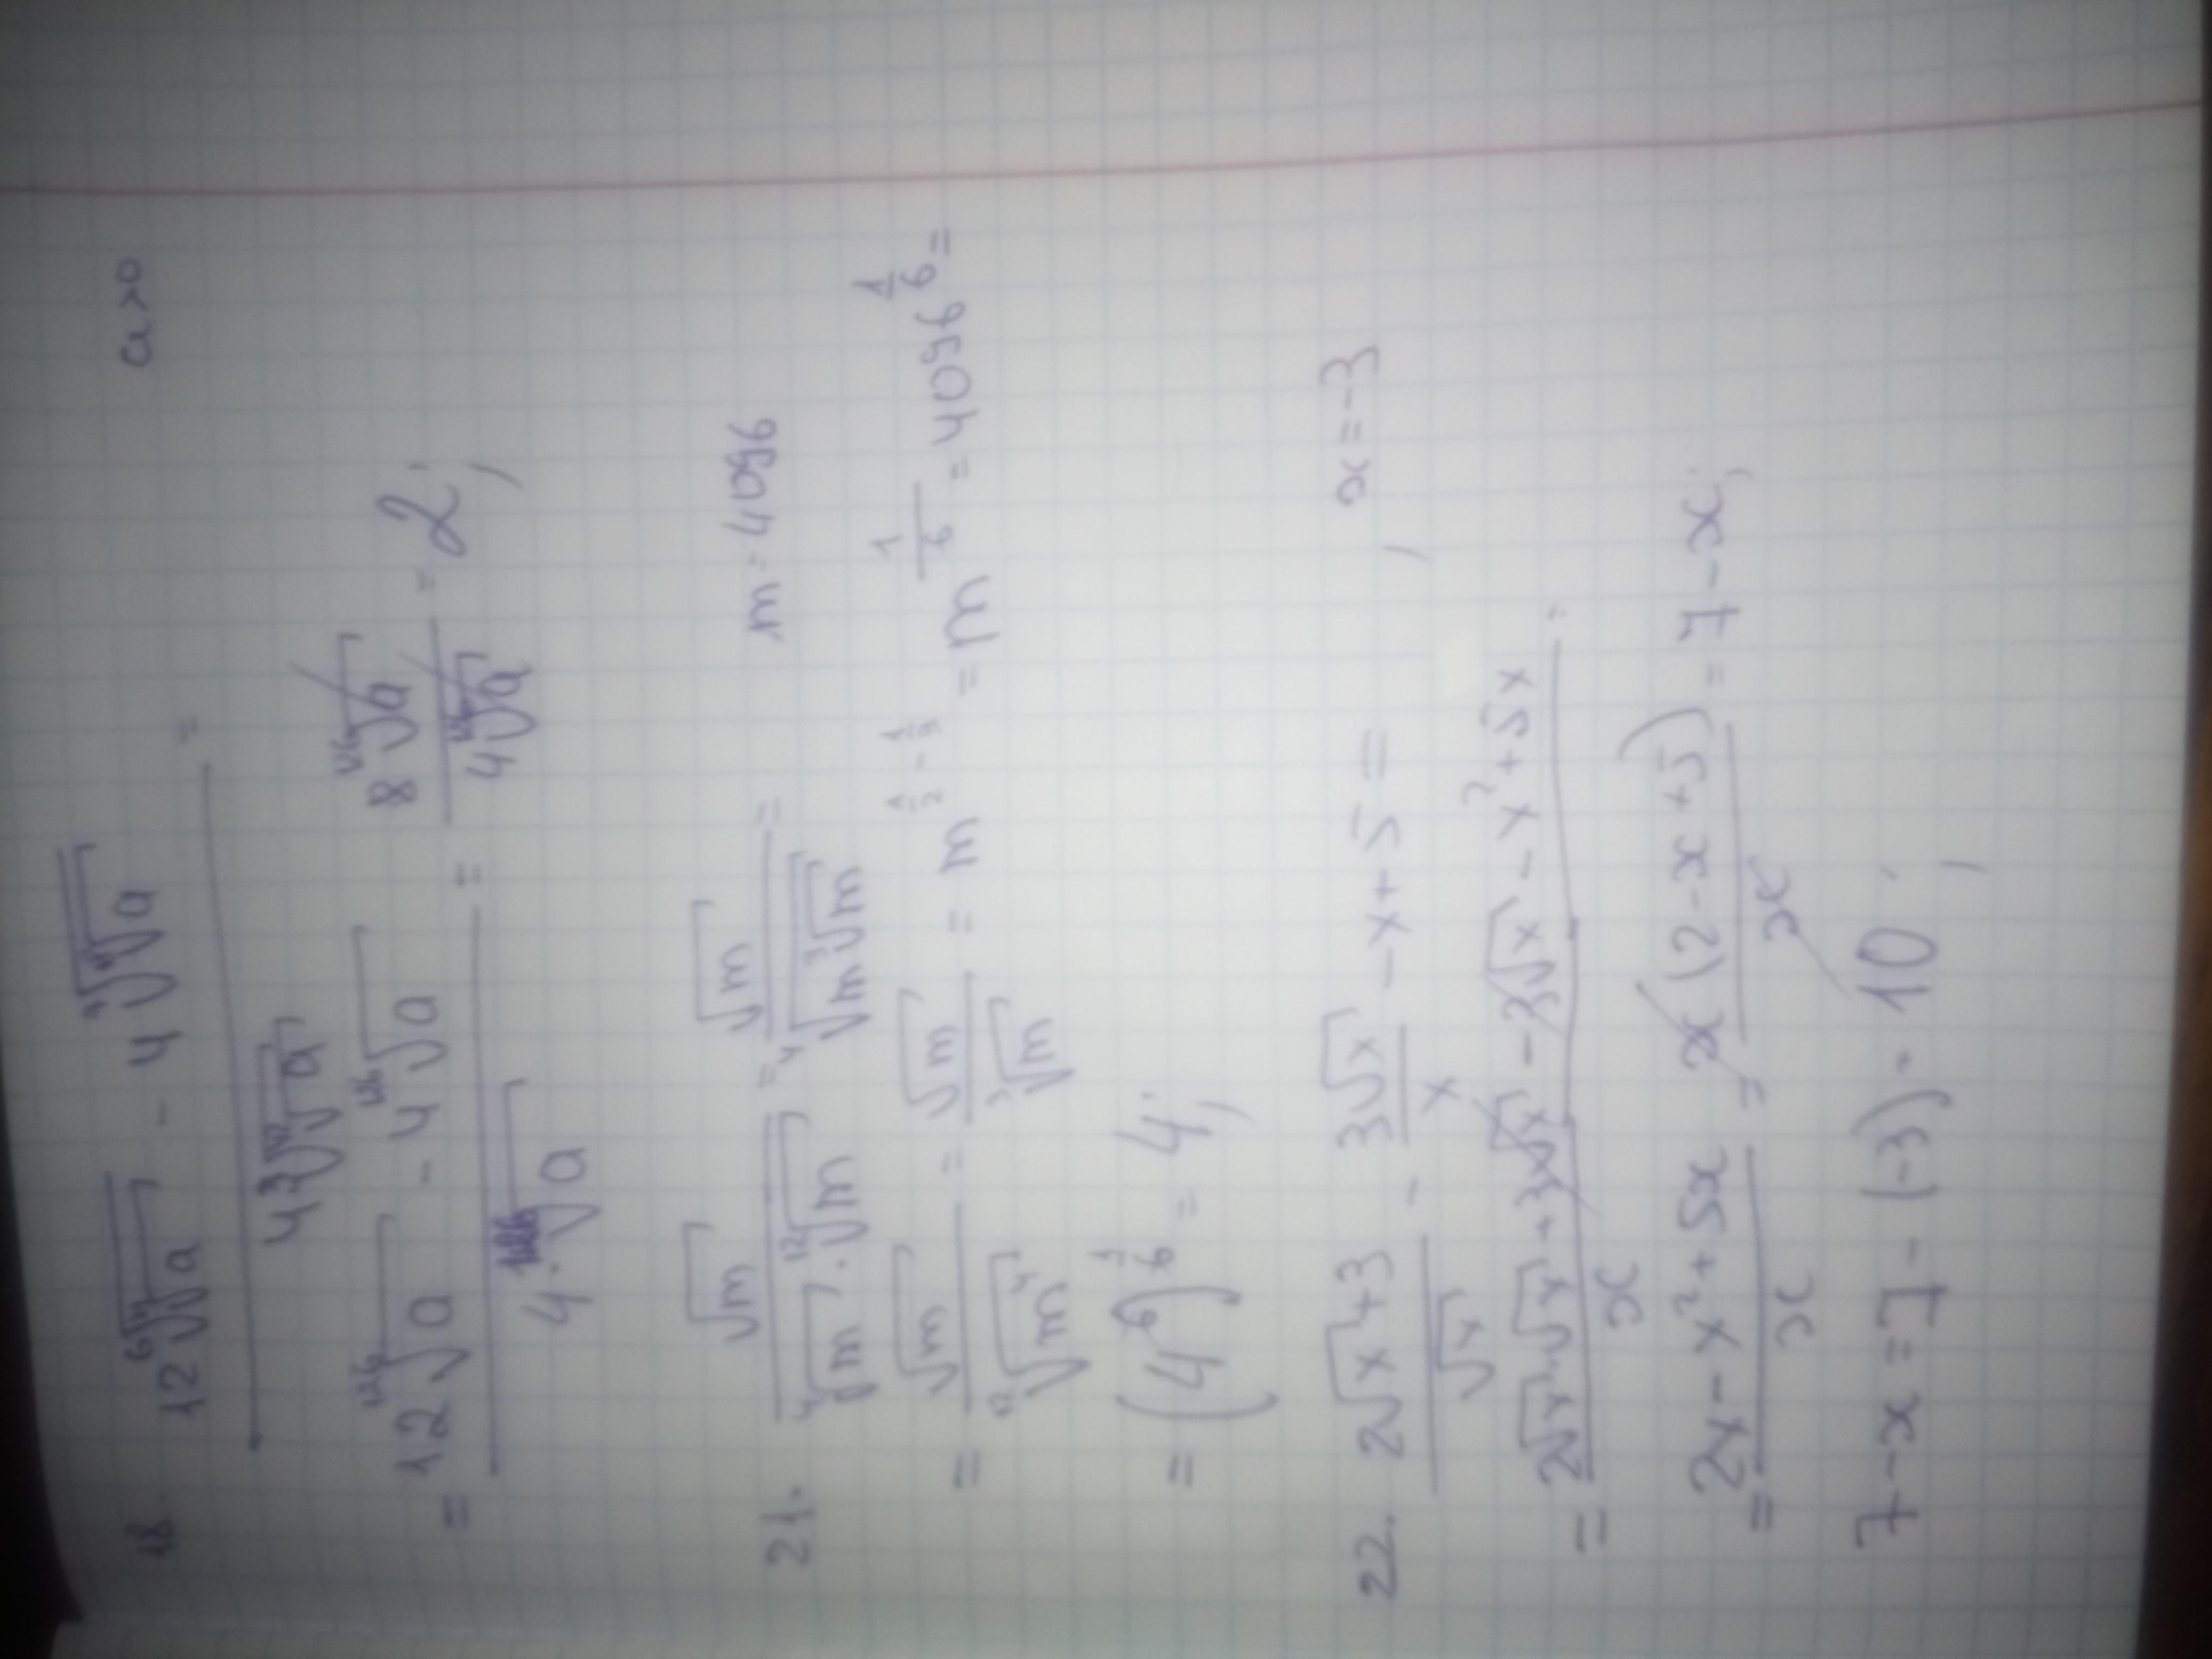 18. (12 ⁶√(√a) - 4 √(√a)) / (4 ³√(¹²√a)) = a>0
= (12 √a - 4 √a) / (4 · √a) = (8 √a) / (4 √a) = 2;
21. √m / (⁴√m · ¹²√m) = √m / ⁴√(m ³√m) = m = 4096
= √m / ¹²√(m⁴) = √m / ³√m = m^(1/2 - 1/3) = m^(1/6) = 4096^(1/6) =
= (4⁶)^(1/6) = 4;
22. (2√x + 3) / √x - 3√x / x - x + 5 = , x = -3
= (2√x · √x + 3√x - 3√x - x² + 5x) / x =
= (2x - x² + 5x) / x = x (2 - x + 5) / x = 7 - x;
7 - x = 7 - (-3) = 10;